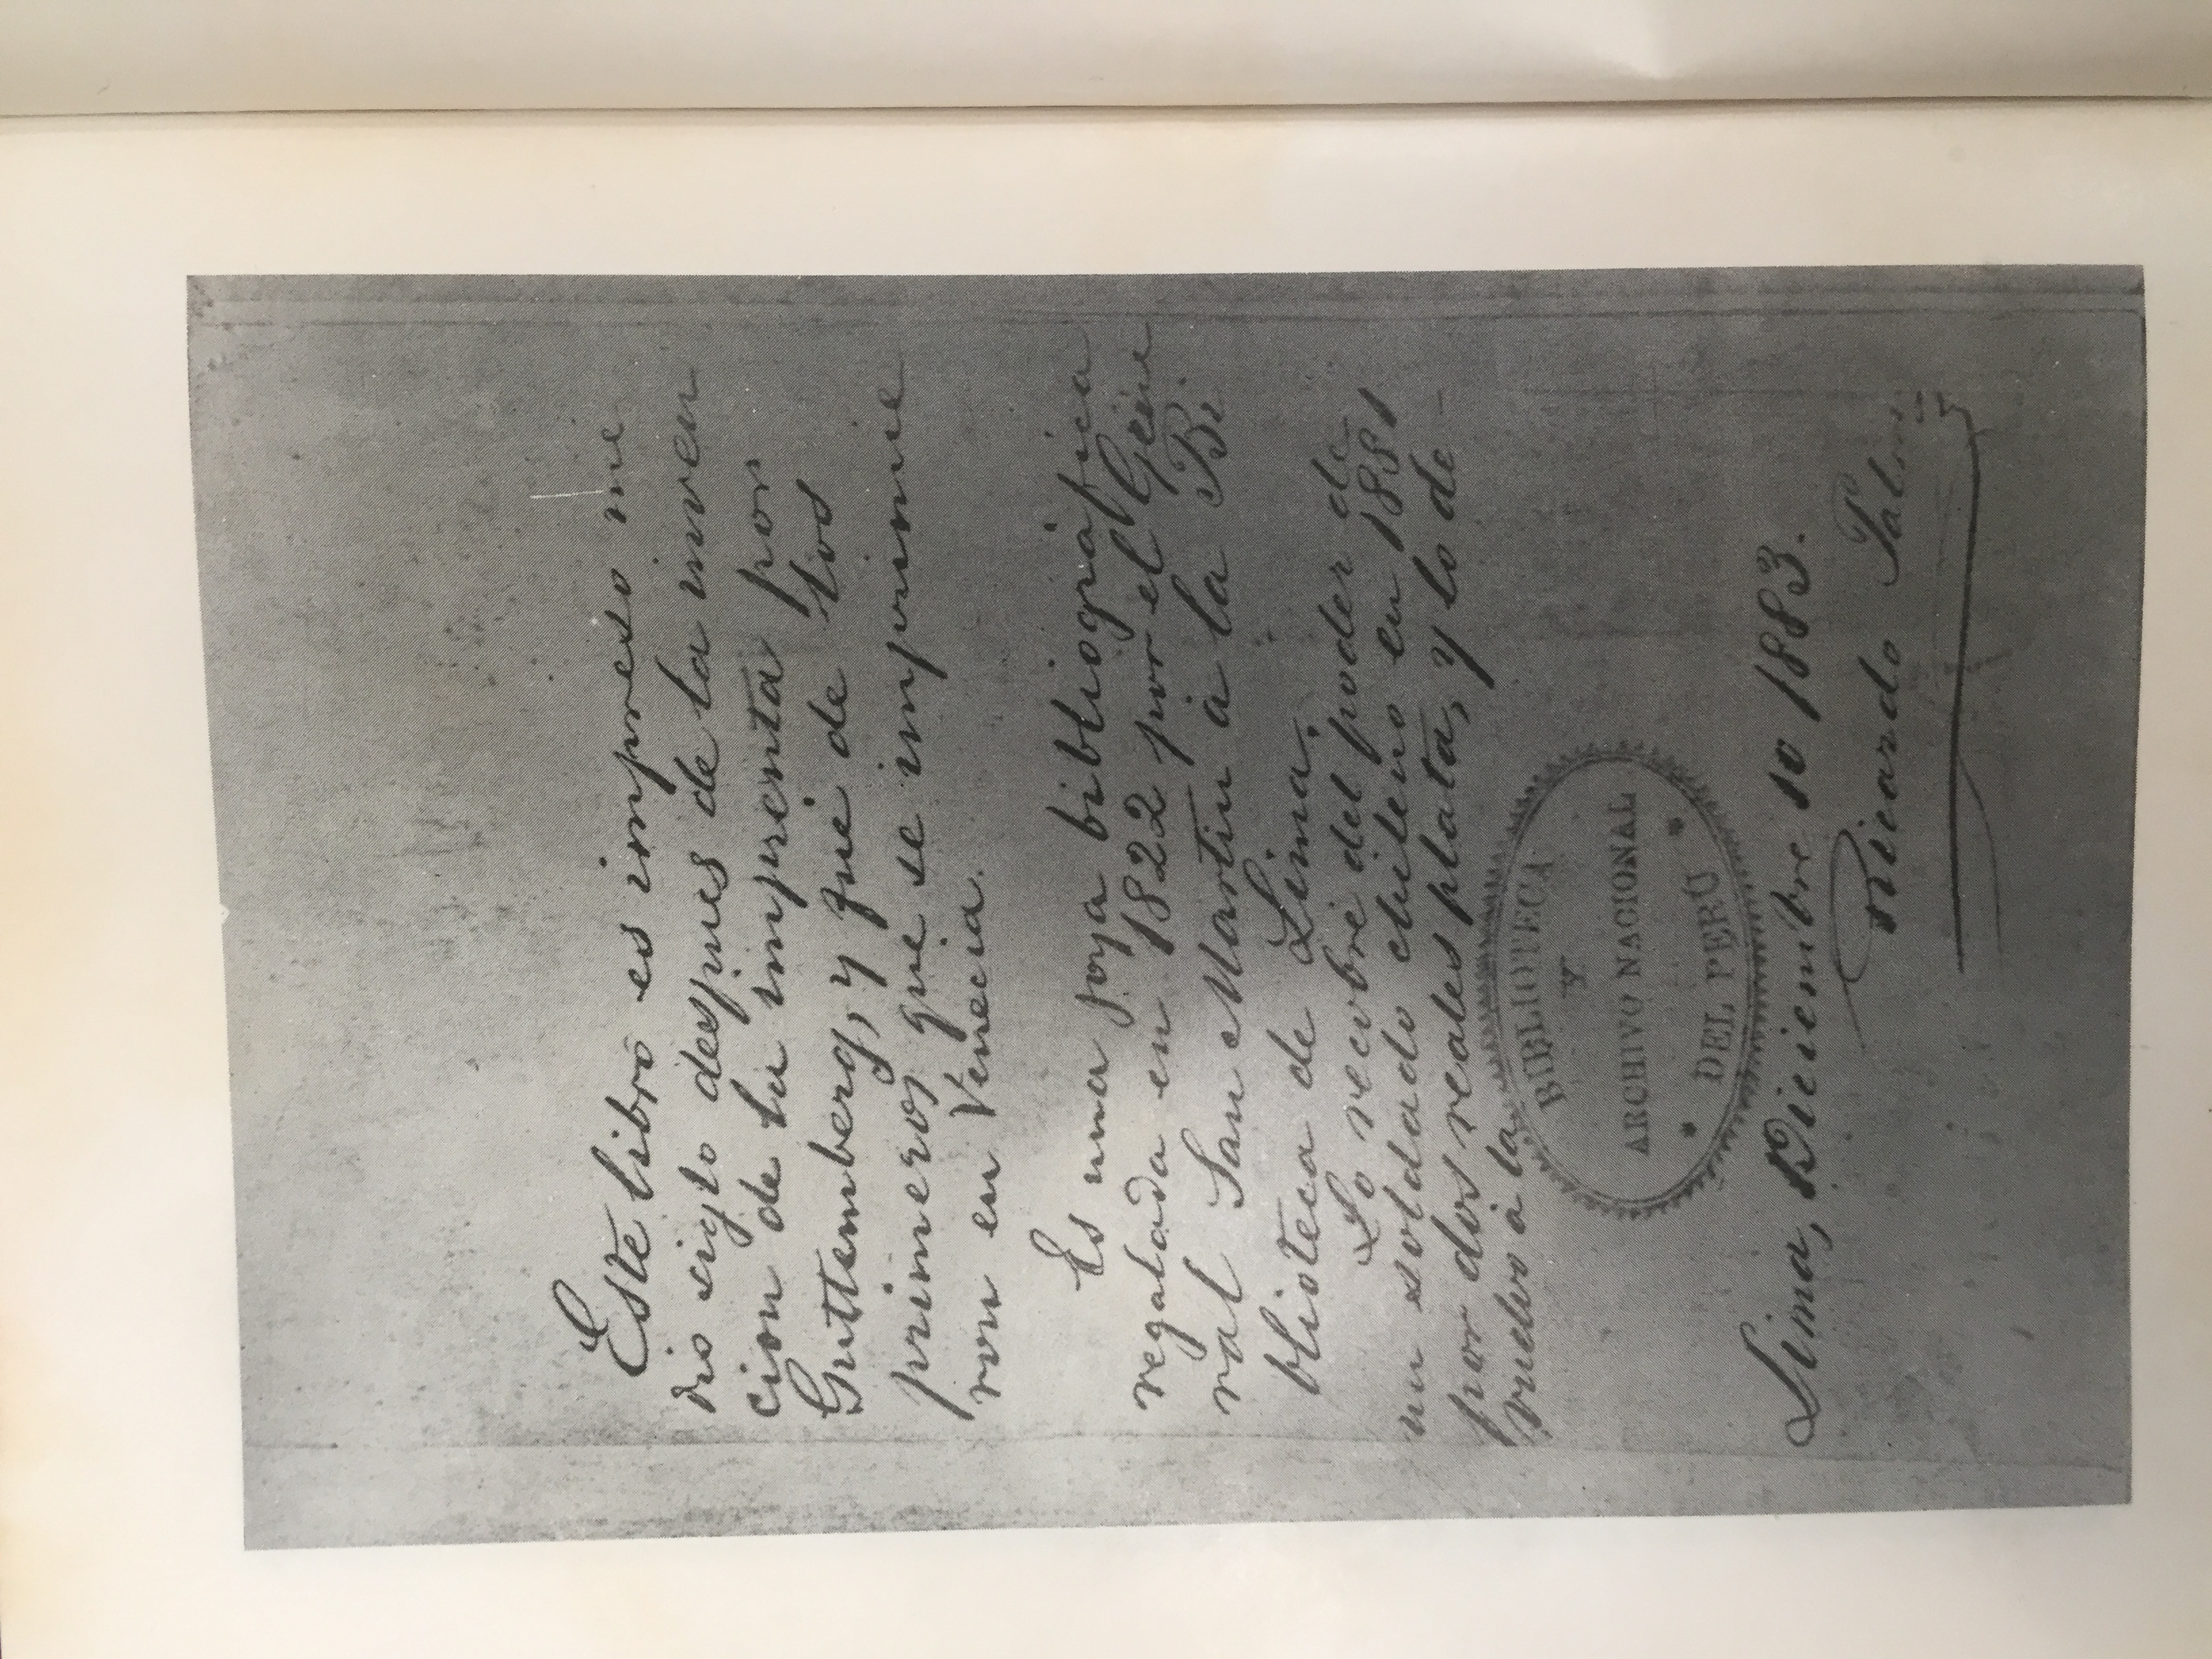 Este libro es impreso me
dio siglo despues de la inven
cion de la imprenta por
Guttemberg, y fué de los
primeros que se imprimie
ron en Venecia.
Es una joya bibliográfica
regalada en 1822 por el Gene
ral San Martin á la Bi
blioteca de Lima.
Lo recobré del poder de
un soldado chileno en 1881
por dos reales plata, y lo de-
vuelvo á la
BIBLIOTECA
Y
ARCHIVO NACIONAL
DEL PERÚ
Lima, Diciembre 10 1883.
Ricardo Palma